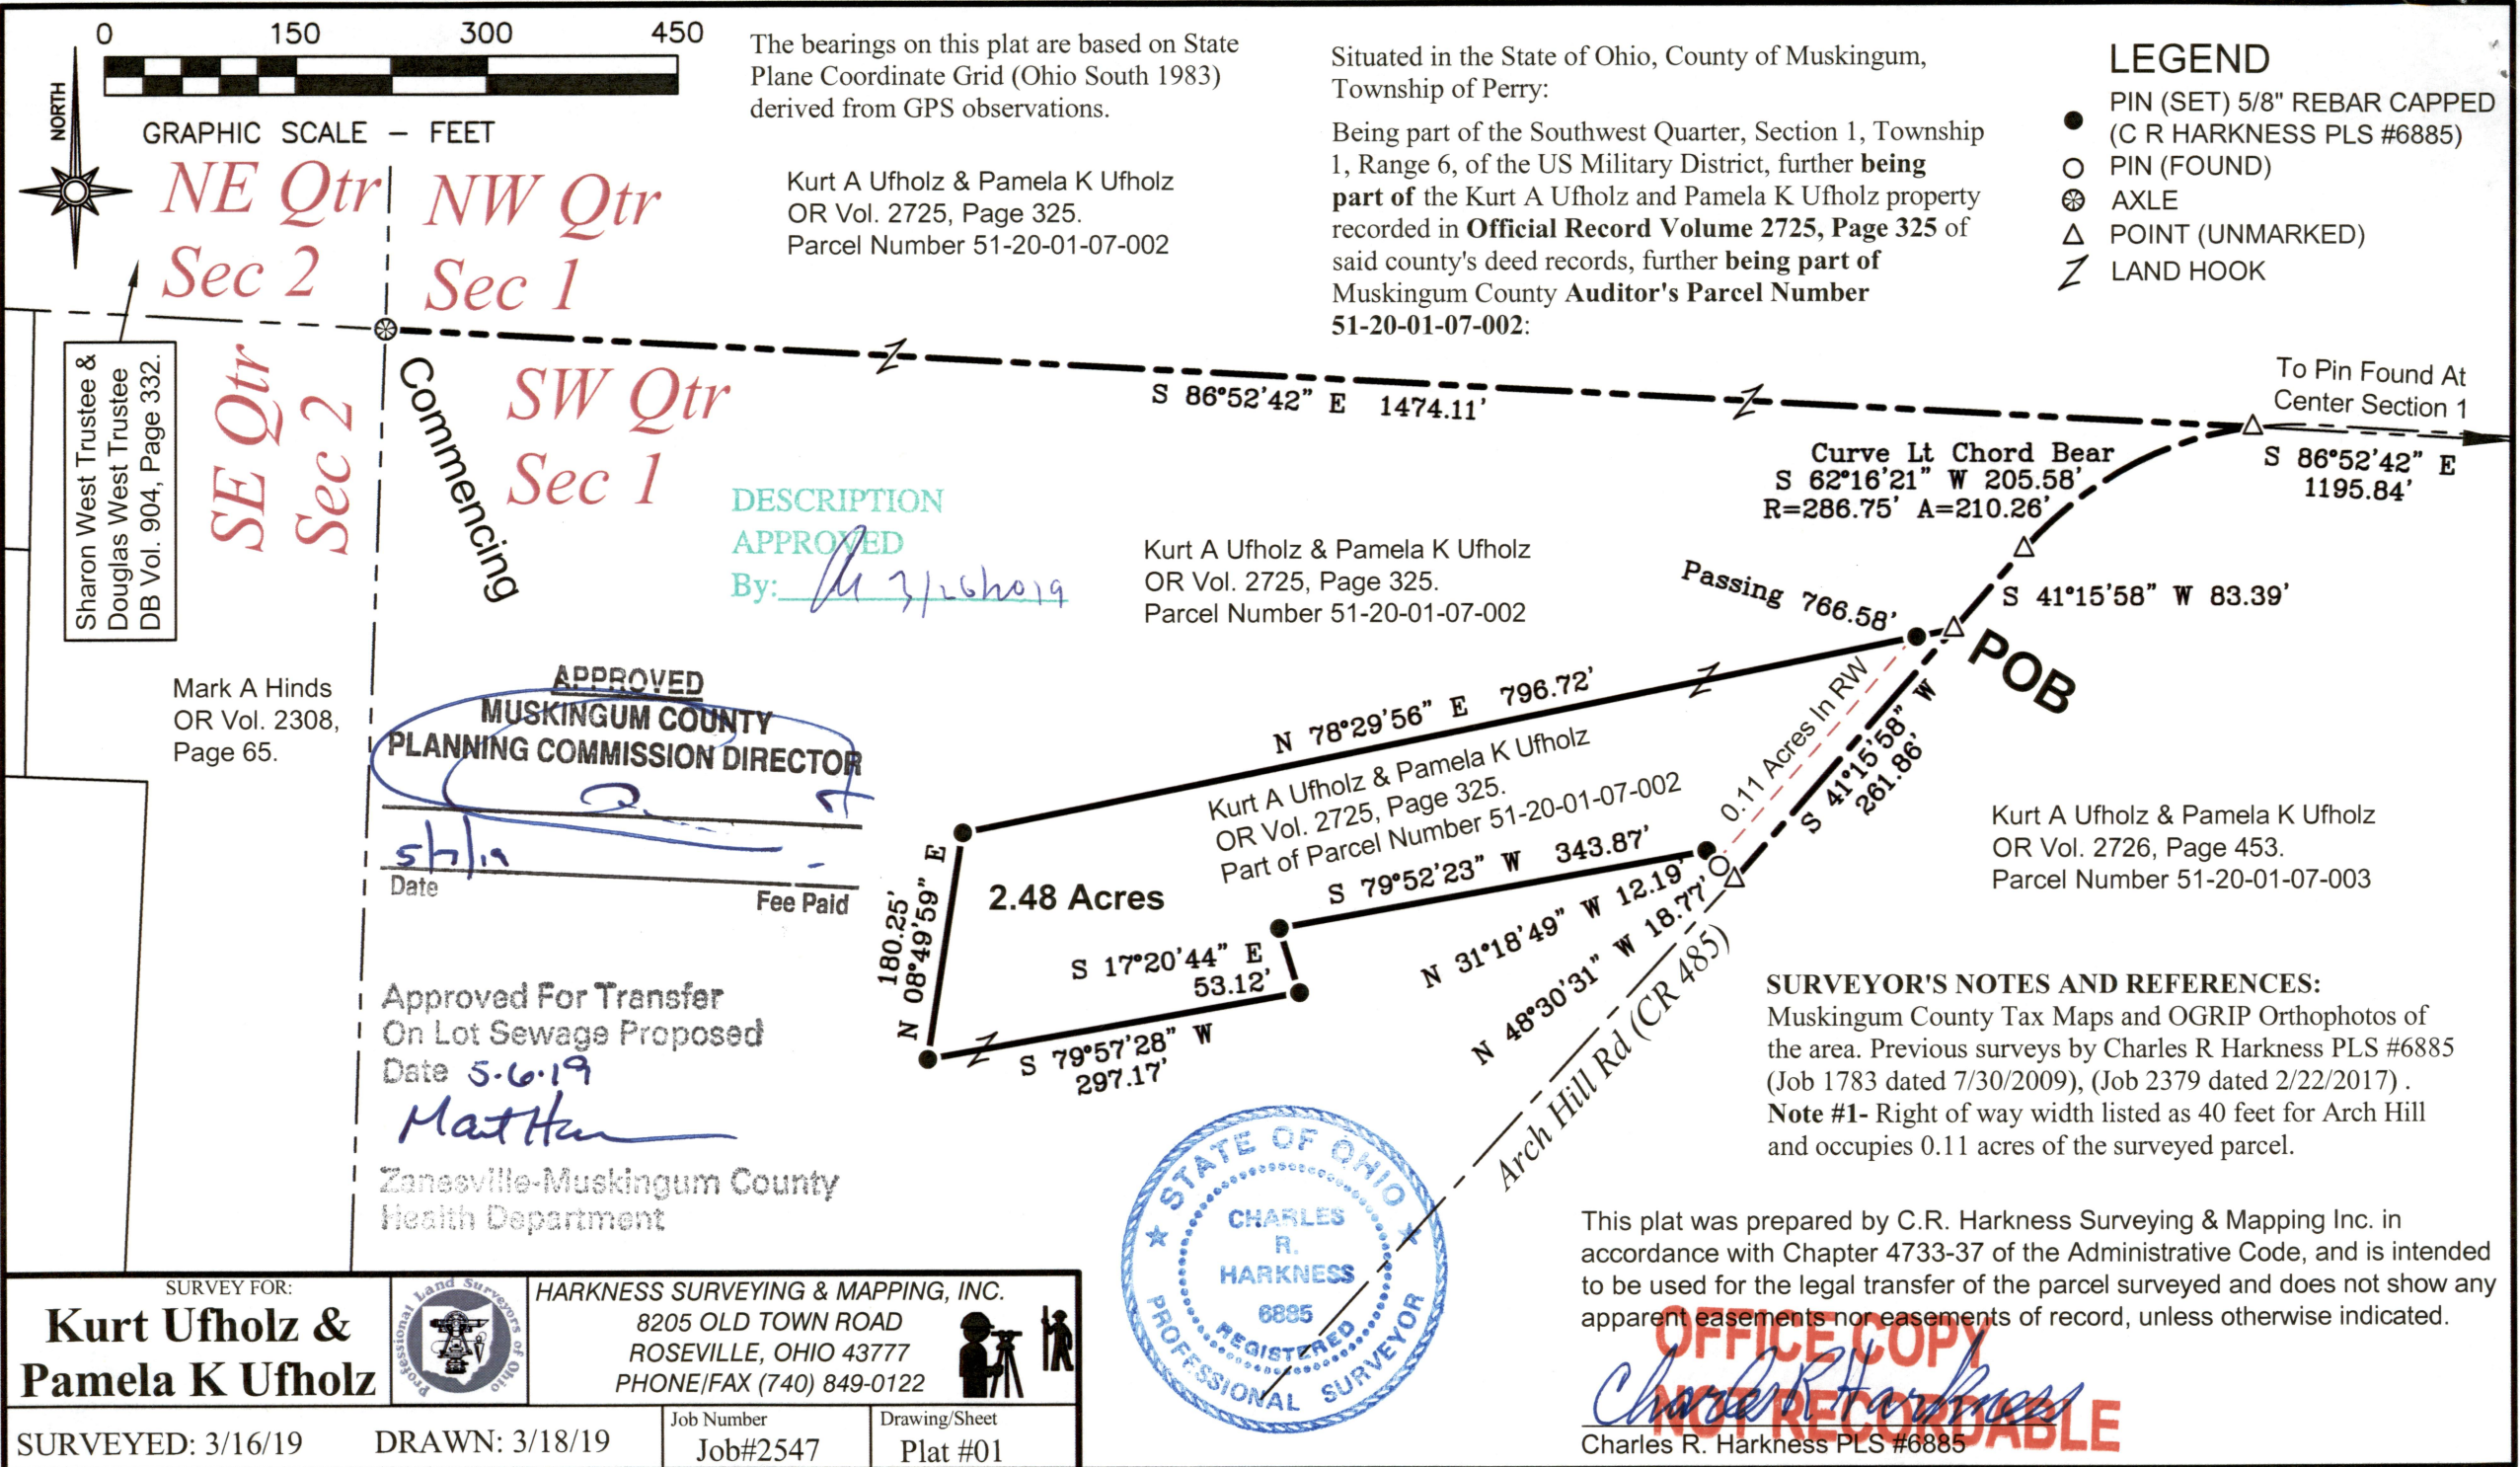 0 150 300 450
GRAPHIC SCALE – FEET
NORTH
The bearings on this plat are based on State
Plane Coordinate Grid (Ohio South 1983)
derived from GPS observations.
Kurt A Ufholz & Pamela K Ufholz
OR Vol. 2725, Page 325.
Parcel Number 51-20-01-07-002
Situated in the State of Ohio, County of Muskingum,
Township of Perry:
Being part of the Southwest Quarter, Section 1, Township
1, Range 6, of the US Military District, further being
part of the Kurt A Ufholz and Pamela K Ufholz property
recorded in Official Record Volume 2725, Page 325 of
said county's deed records, further being part of
Muskingum County Auditor's Parcel Number
51-20-01-07-002:
LEGEND
PIN (SET) 5/8" REBAR CAPPED
(C R HARKNESS PLS #6885)
PIN (FOUND)
AXLE
POINT (UNMARKED)
LAND HOOK
NE Qtr
Sec 2
NW Qtr
Sec 1
SE Qtr
Sec 2
SW Qtr
Sec 1
Sharon West Trustee &
Douglas West Trustee
DB Vol. 904, Page 332.
Commencing
S 86°52'42" E 1474.11'
To Pin Found At
Center Section 1
S 86°52'42" E
1195.84'
Curve Lt Chord Bear
S 62°16'21" W 205.58'
R=286.75' A=210.26'
DESCRIPTION
APPROVED
By: 3/26/2019
Kurt A Ufholz & Pamela K Ufholz
OR Vol. 2725, Page 325.
Parcel Number 51-20-01-07-002
Passing 766.58'
S 41°15'58" W 83.39'
POB
Mark A Hinds
OR Vol. 2308,
Page 65.
APPROVED
MUSKINGUM COUNTY
PLANNING COMMISSION DIRECTOR
5/7/19
Date
Fee Paid
N 78°29'56" E 796.72'
Kurt A Ufholz & Pamela K Ufholz
OR Vol. 2725, Page 325.
Part of Parcel Number 51-20-01-07-002
0.11 Acres In RW
S 41°15'58" W
261.86'
Kurt A Ufholz & Pamela K Ufholz
OR Vol. 2726, Page 453.
Parcel Number 51-20-01-07-003
S 79°52'23" W 343.87'
2.48 Acres
180.25'
N 08°49'59" E
S 17°20'44" E
53.12'
N 31°18'49" W 12.19'
N 48°30'31" W 18.77'
S 79°57'28" W
297.17'
Arch Hill Rd (CR 485)
Approved For Transfer
On Lot Sewage Proposed
Date 5.6.19
Zanesville-Muskingum County
Health Department
SURVEYOR'S NOTES AND REFERENCES:
Muskingum County Tax Maps and OGRIP Orthophotos of
the area. Previous surveys by Charles R Harkness PLS #6885
(Job 1783 dated 7/30/2009), (Job 2379 dated 2/22/2017) .
Note #1- Right of way width listed as 40 feet for Arch Hill
and occupies 0.11 acres of the surveyed parcel.
STATE OF OHIO
CHARLES
R.
HARKNESS
6885
REGISTERED
PROFESSIONAL SURVEYOR
This plat was prepared by C.R. Harkness Surveying & Mapping Inc. in
accordance with Chapter 4733-37 of the Administrative Code, and is intended
to be used for the legal transfer of the parcel surveyed and does not show any
apparent easements nor easements of record, unless otherwise indicated.
OFFICE COPY
NOT RECORDABLE
Charles R Harkness
Charles R. Harkness PLS #6885
SURVEY FOR:
Kurt Ufholz &
Pamela K Ufholz
Professional Land Surveyors of Ohio
HARKNESS SURVEYING & MAPPING, INC.
8205 OLD TOWN ROAD
ROSEVILLE, OHIO 43777
PHONE/FAX (740) 849-0122
SURVEYED: 3/16/19
DRAWN: 3/18/19
Job Number
Job#2547
Drawing/Sheet
Plat #01